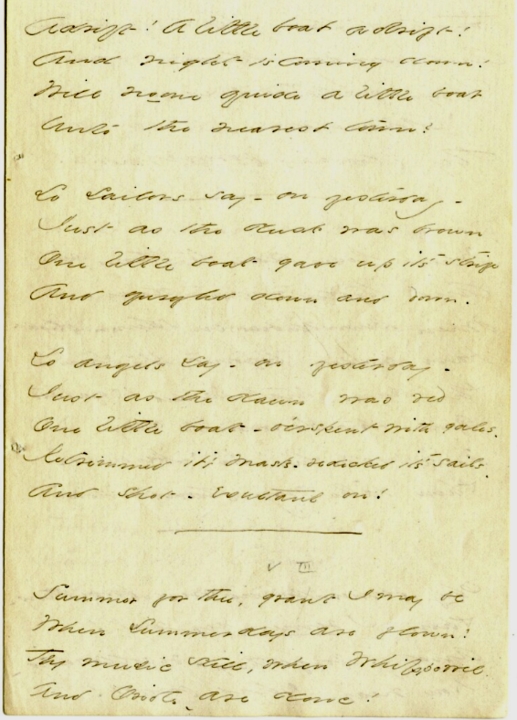 Adrift! A little boat adrift!
And night is coming down!
Will no one guide a little boat
Unto the nearest town?
So Sailors say - on yesterday -
Just as the dusk was brown
One little boat gave up its strife
And gurgled down and down.
So angels say - on yesterday -
Just as the dawn was red
One little boat - o'erspent with gales -
Retrimmed its masts - redecked its sails -
And shot - exultant on!
VII
Summer for thee, grant I may be
When Summer days are flown!
Thy music still, when Whippoorwill
And Oriole - are done!